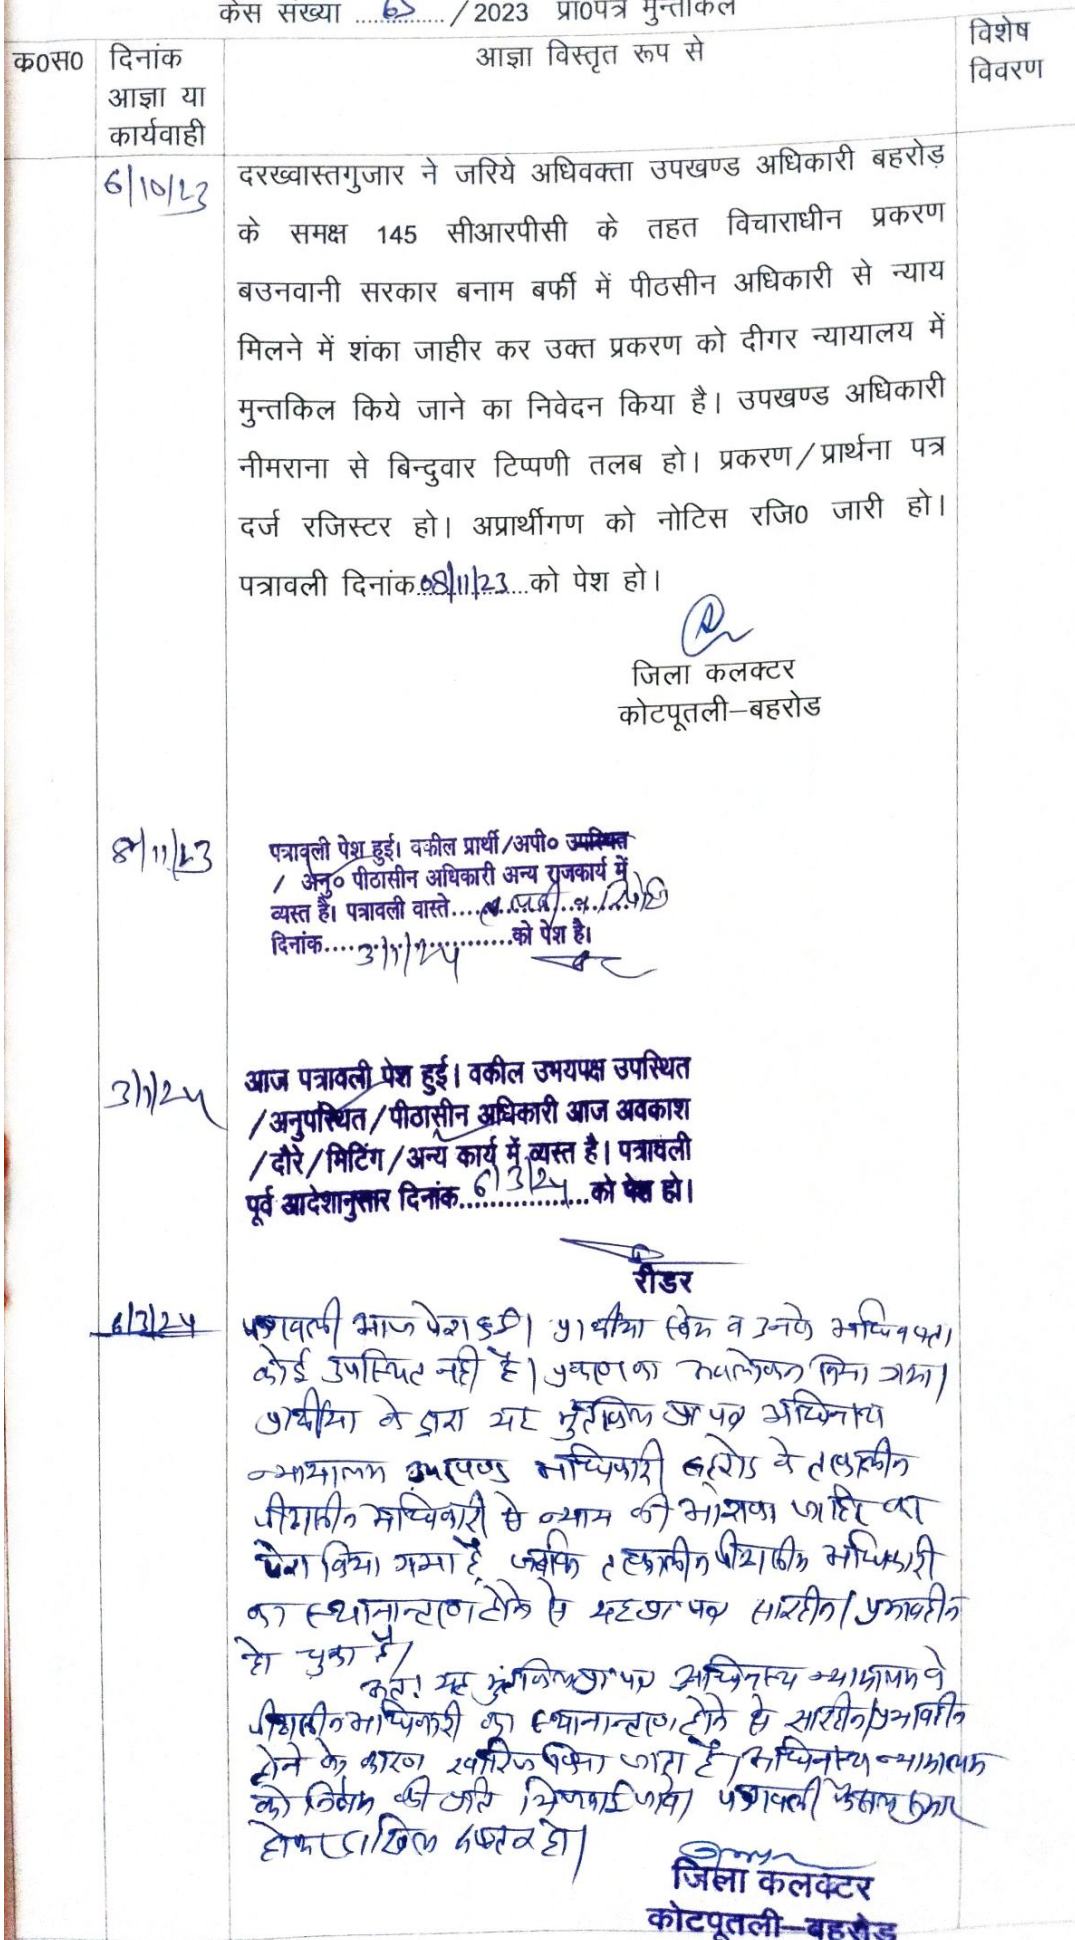 केस संख्या ...65... / 2023 प्रा0पत्र मुन्तकिल
क0स0
दिनांक
आज्ञा या
कार्यवाही
आज्ञा विस्तृत रूप से
विशेष
विवरण
6/10/23
दरख्वास्तगुजार ने जरिये अधिवक्ता उपखण्ड अधिकारी बहरोड़
के समक्ष 145 सीआरपीसी के तहत विचाराधीन प्रकरण
बउनवानी सरकार बनाम बर्फी में पीठसीन अधिकारी से न्याय
मिलने में शंका जाहीर कर उक्त प्रकरण को दीगर न्यायालय में
मुन्तकिल किये जाने का निवेदन किया है। उपखण्ड अधिकारी
नीमराना से बिन्दुवार टिप्पणी तलब हो। प्रकरण/प्रार्थना पत्र
दर्ज रजिस्टर हो। अप्रार्थीगण को नोटिस रजि0 जारी हो।
पत्रावली दिनांक 08/11/23 को पेश हो।
जिला कलक्टर
कोटपूतली–बहरोड
8/11/23
पत्रावली पेश हुई। वकील प्रार्थी/अपी० उपस्थित
/ अनु० पीठासीन अधिकारी अन्य राजकार्य में
व्यस्त है। पत्रावली वास्ते....
दिनांक.... 3/1/24 ....को पेश है।
3/1/24
आज पत्रावली पेश हुई। वकील उभयपक्ष उपस्थित
/अनुपस्थित/पीठासीन अधिकारी आज अवकाश
/दौरे/मिटिंग/अन्य कार्य में व्यस्त है। पत्रावली
पूर्व आदेशानुसार दिनांक 6/3/24 को पेश हो।
रीडर
6/3/24
पत्रावली आज पेश हुई। प्रार्थीया स्वंय व उनके अधिवक्ता
कोई उपस्थित नही है। प्रकरण का अवलोकन किया गया।
प्रार्थीया के द्वारा यह मुंतकिल प्रा पत्र अधिनस्थ
न्यायालय उपखण्ड अधिकारी बहरोड के तत्कालीन
पीठासीन अधिकारी से न्याय की आशंका जाहिर कर
पेश किया गया है, जबकि तत्कालीन पीठासीन अधिकारी
का स्थानान्तरण होने से यह प्रा पत्र सारहीन/प्रभावहीन
हो चुका है।
अतः यह मुंतकिल प्रा पत्र अधिनस्थ न्यायालय के
पीठासीन अधिकारी का स्थानान्तरण होने से सारहीन/प्रभावहीन
होने के कारण खारिज किया जाता है। अधिनस्थ न्यायालय
को निर्णय की प्रति भिजवाई जावे। पत्रावली फैसल शुमार
होकर दाखिल दफ्तर हो।
जिला कलक्टर
कोटपूतली–बहरोड